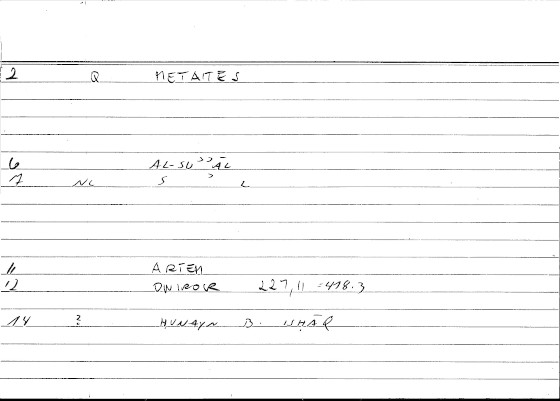 2 Q METAITES
6 AL-SUʾʾĀL
7 NL S ʾ L
11 ARTEM
12 ONIROCR 227,11 = 478.3
14 ? HUNAYN B. ISHĀQ